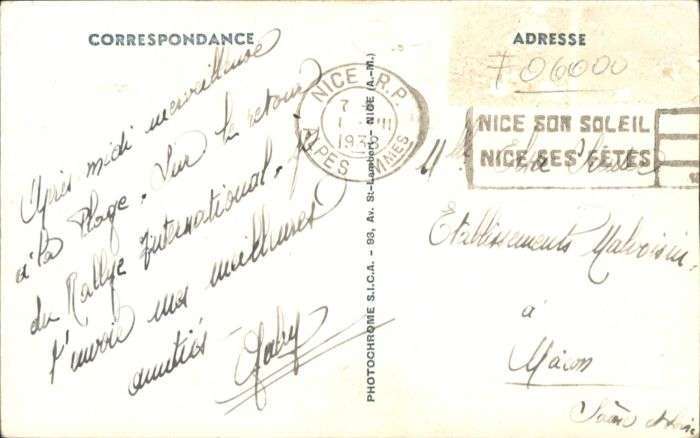 CORRESPONDANCE
Après midi merveilleuse
à la Plage. Sur le retour
du Rallye International, je
t'envoie mes meilleures
amitiés Gaby
PHOTOCHROME S.I.C.A. - 93, Av. St-Lambert - NICE (A.-M.)
NICE R.P.
7
ALPES MMES
ADRESSE
06000
NICE SON SOLEIL
NICE SES FÊTES
Etablissements Malvoisin
à
Mâcon
Saône et Loire